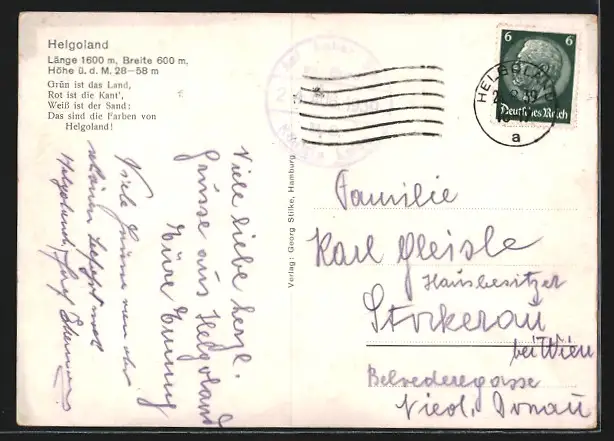 Helgoland
Länge 1600 m, Breite 600 m,
Höhe ü. d. M. 28–58 m
Grün ist das Land,
Rot ist die Kant',
Weiß ist der Sand:
Das sind die Farben von
Helgoland!
Viele liebe herzl.
Grüsse aus Helgoland
Eure Emmy
Viele Grüsse von der
schönen
Helgoland,
Verlag: Georg Stilke, Hamburg
6 6
Deutsches Reich
HELGOLAND
a
Familie
Karl Gleisle
Hausbesitzer
Stockerau
bei Wien
Belvederegasse
Nied. Donau